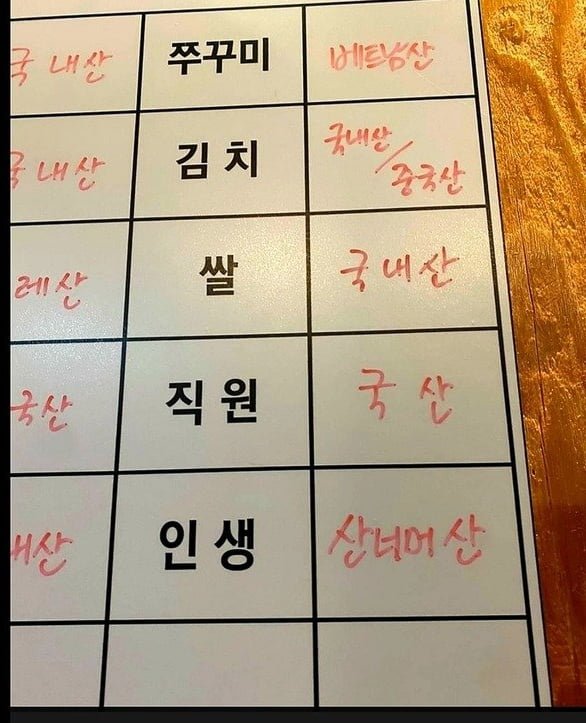 국내산 쭈꾸미 베트남산
국내산 김치 국내산/중국산
레산 쌀 국내산
국산 직원 국산
내산 인생 산너머산